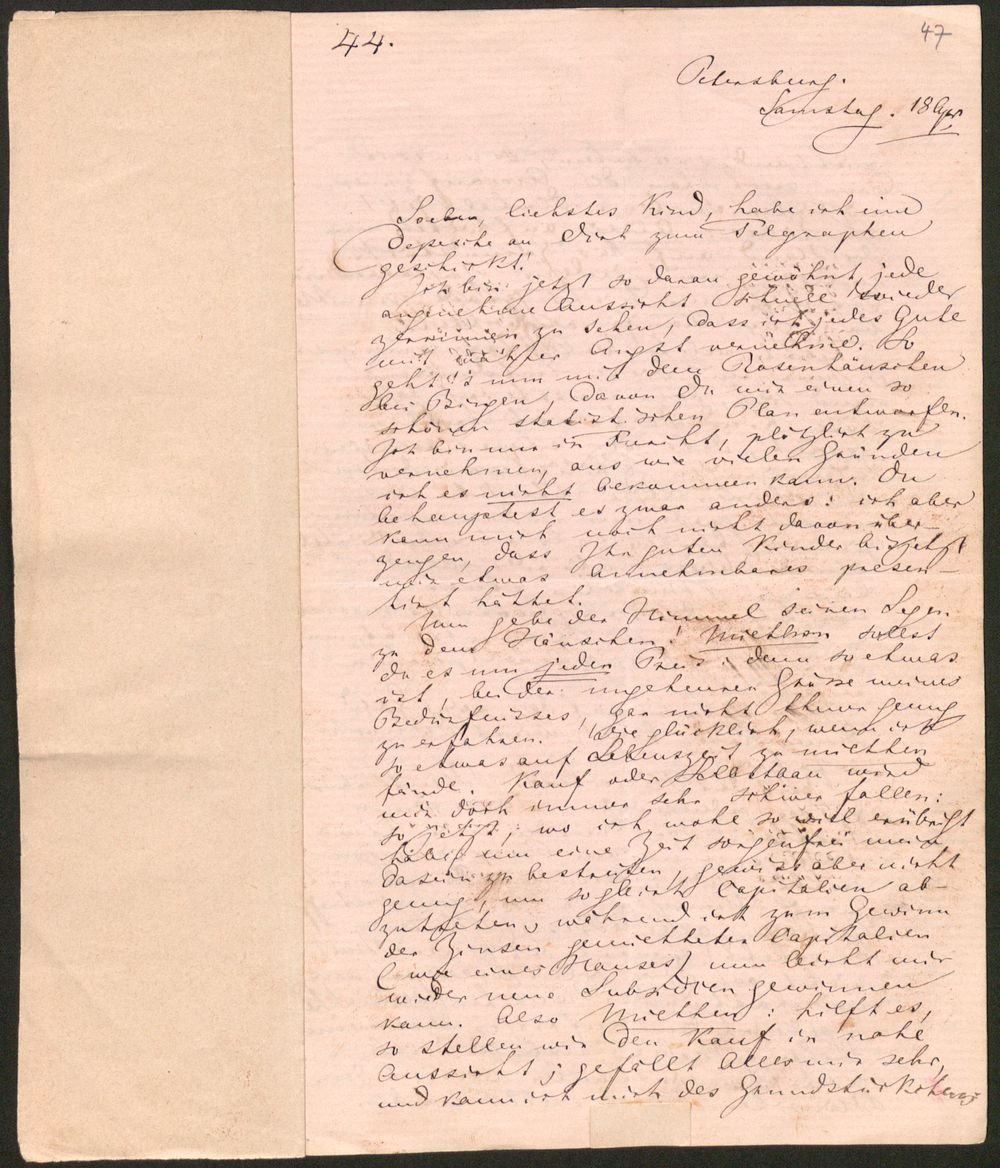 44.
47
Petersburg.
Samstag. 18 Apr.
Soeben, liebstes Kind, habe ich eine
Depesche an Dich zum Telegraphen
geschickt!
Ich bin jetzt so daran gewöhnt, jede
angenehme Aussicht schnell wieder
zerrinnen zu sehen, dass ich jedes Gute
mit Angst vernehme. So
geht's nun mit dem Rosenhäuschen
bei Bingen, davon Du mir einen so
schönen statistischen Plan entworfen.
Ich bin nur in Furcht, plötzlich zu
vernehmen, aus wie vielen Gründen
ich es nicht bekommen kann. Du
behauptest es zwar anders: ich aber
kann mich noch nicht davon über-
zeugen, dass Ihr guten Kinder bis jetzt
mir etwas Annehmbares präsen-
tirt hättet.
Nun gebe der Himmel seinen Segen
zu dem Häuschen! Miethen sollst
du es um jeden Preis: denn so etwas
ist, bei der ungeheuren Grösse meines
Bedürfnisses, gar nicht theuer genug
zu erfahren. Wie glücklich, wenn ich
so etwas auf Lebenszeit zu miethen
fände. Kauf oder Selbstbau wird
mir doch immer sehr schwer fallen:
so jetzt, wo ich wohl so viel erübrigt
habe, um eine Zeit sorgenfrei mein
Dasein zu bestreiten, gewiss aber nicht
genug, um sogleich Capitalien ab-
zutreten, während ich zum Gewinn
der Zinsen gemietheter Capitalien
(wie eines Hauses) nun leicht mir
wieder neue Subsidien gewinnen
kann. Also Miethen: hilft es,
so stellen wir den Kauf in nahe
Aussicht; gefällt Alles mir sehr,
und kann ich mich des Grundstücks